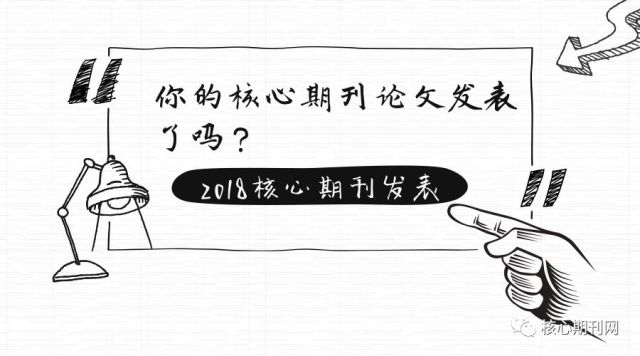 你的核心期刊论文发表
了吗？
2018核心期刊发表
核心期刊网